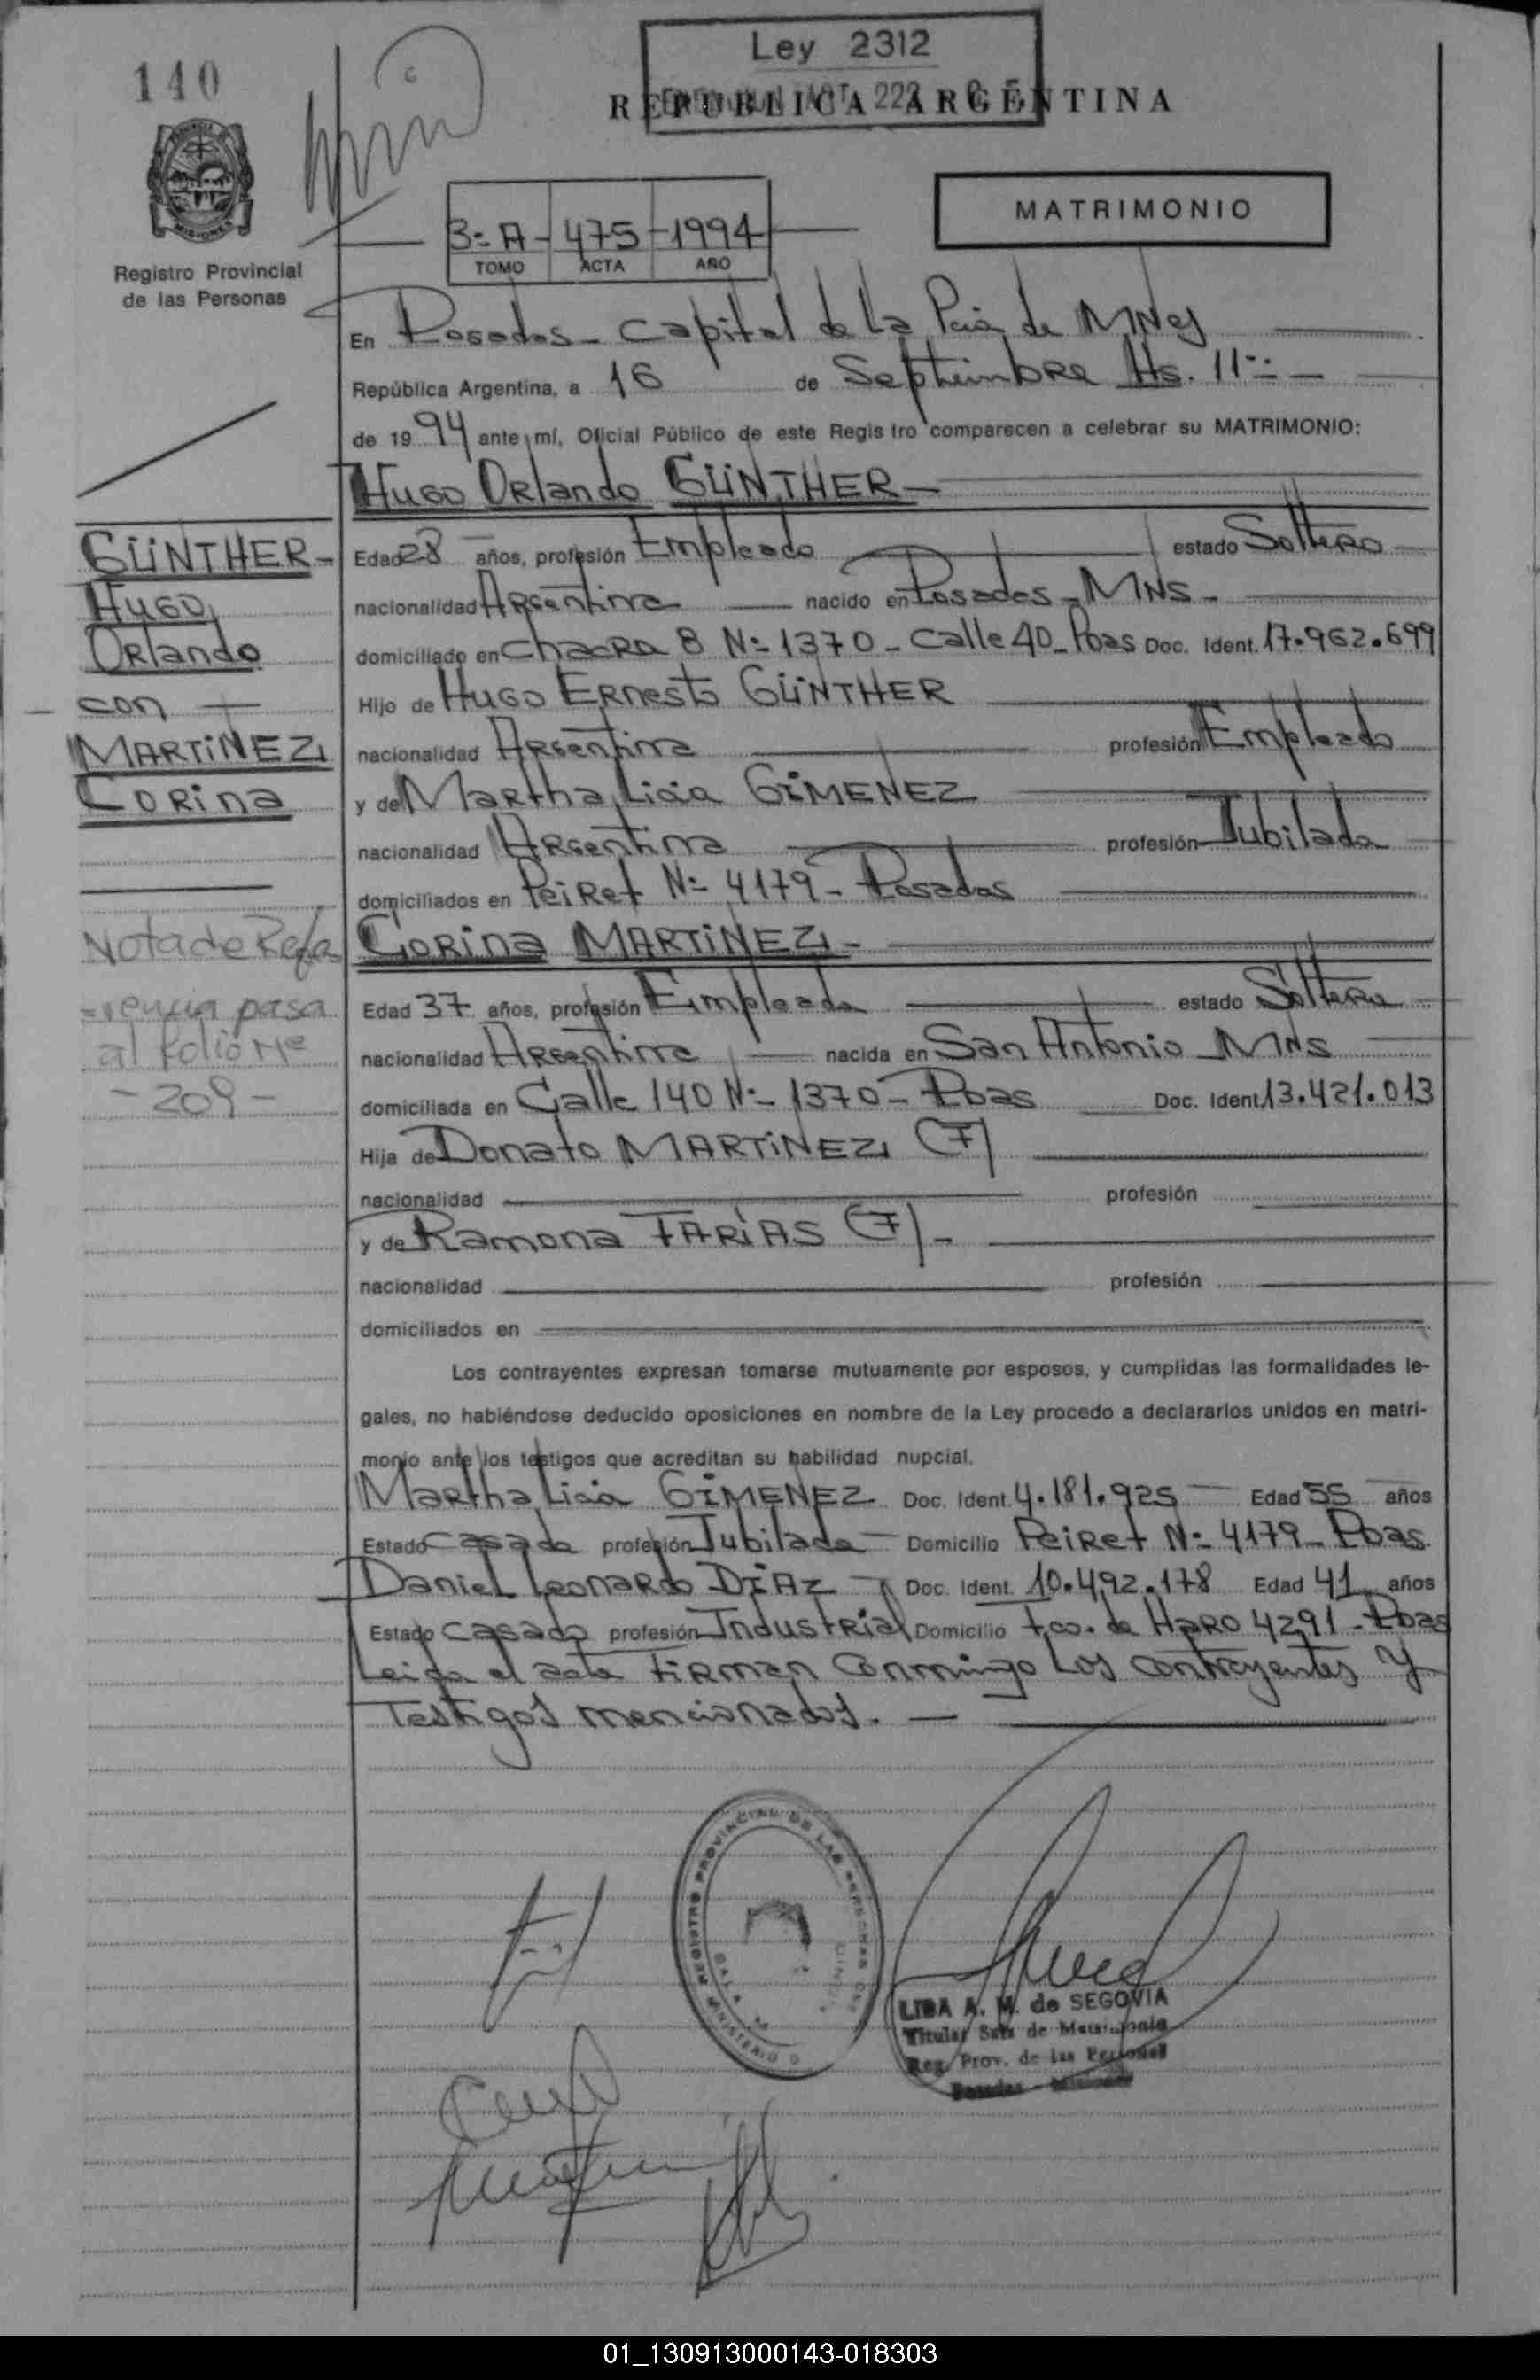 140
Ley 2312
REPUBLICA ARGENTINA
MISIONES
Registro Provincial
de las Personas
3º A - 475 - 1994
TOMO ACTA AÑO
MATRIMONIO
En Posadas - Capital de la Pcia de MNes
República Argentina, a 16 de Septiembre Hs. 11
de 1994 ante mí, Oficial Público de este Regis tro comparecen a celebrar su MATRIMONIO:
Hugo Orlando GÜNTHER -
GÜNTHER -
Hugo
Orlando
con
MARTINEZ
Corina
Edad 28 años, profesión Empleado estado Soltero
nacionalidad Argentina nacido en Posadas - MNS -
domiciliado en Chacra 8 Nº 1370 - Calle 40 - Pdas Doc. Ident. 17.962.699
Hijo de Hugo Ernesto GÜNTHER
nacionalidad Argentina profesión Empleado
y de Martha Licia GIMENEZ
nacionalidad Argentina profesión Jubilada
domiciliados en Peiret Nº 4179 - Posadas
Corina MARTINEZ -
Nota de Refe
=rencia pasa
al Folio Nº
- 209 -
Edad 37 años, profesión Empleada estado Soltera
nacionalidad Argentina nacida en San Antonio MNS
domiciliada en Calle 140 Nº 1370 - Pdas Doc. Ident. 13.421.013
Hija de Donato MARTINEZ (F)
nacionalidad profesión
y de Ramona FARIAS (F) -
nacionalidad profesión
domiciliados en
Los contrayentes expresan tomarse mutuamente por esposos, y cumplidas las formalidades le-
gales, no habiéndose deducido oposiciones en nombre de la Ley procedo a declararlos unidos en matri-
monio ante los testigos que acreditan su habilidad nupcial.
Martha Licia GIMENEZ Doc. Ident. 4.181.925 Edad 55 años
Estado Casada profesión Jubilada - Domicilio Peiret Nº 4179 - Pdas.
Daniel Leonardo DIAZ Doc. Ident. 10.492.178 Edad 41 años
Estado Casado profesión Industrial Domicilio Fco. de Haro 4291 - Pdas
Leida el acta firman conmingo los contrayentes y
Testigos mencionados. -
REGISTRO PROVINCIAL DE LAS PERSONAS
MINISTERIO
LIDA A. M. de SEGOVIA
Titular Sala de Matrimonio
Reg. Prov. de las Personas
Posadas - Misiones
01_130913000143-018303